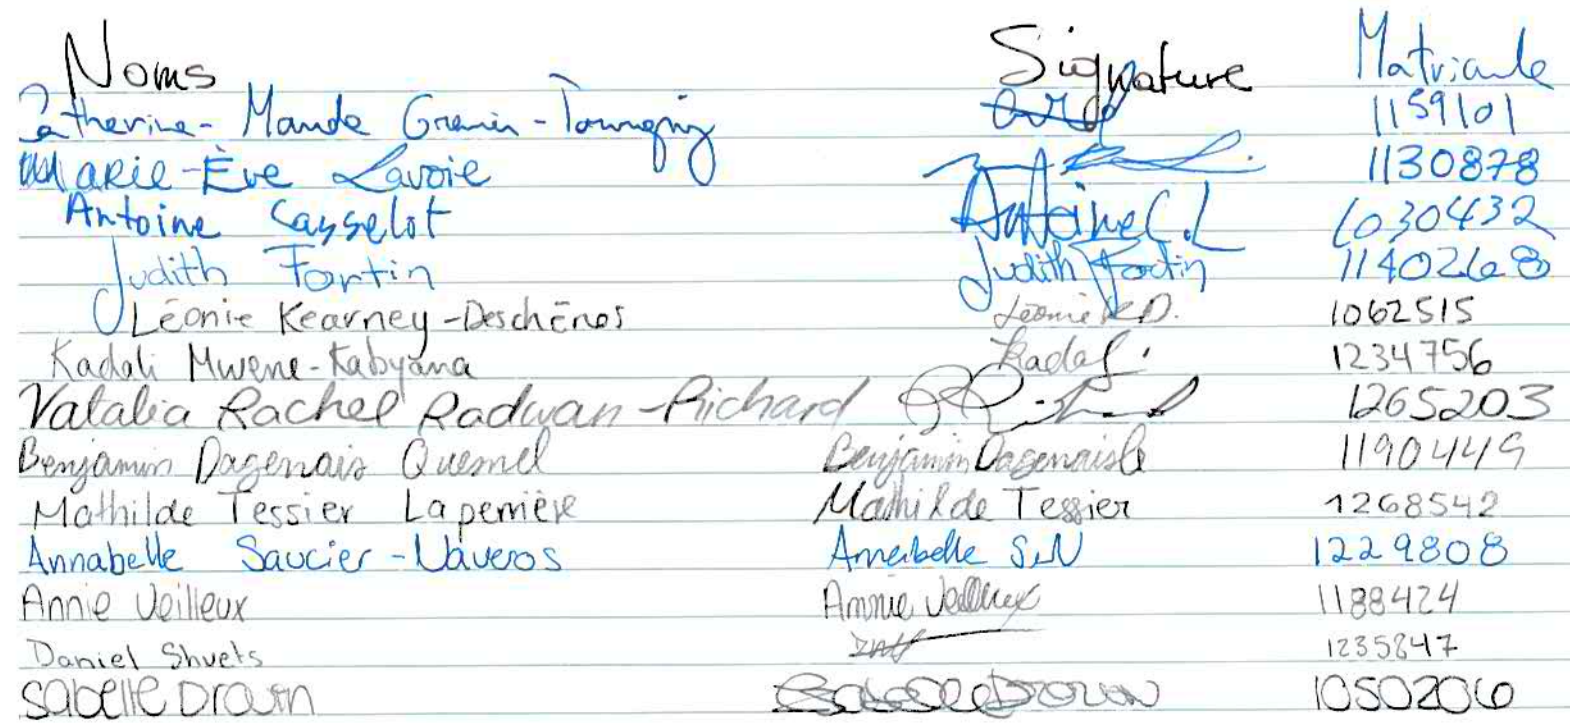 Noms Signature Matricule
Catherine-Maude Grenier-Tourigny 1159101
Marie-Ève Lavoie 1130878
Antoine Casselot Antoine C.L 1030432
Judith Fortin Judith Fortin 1140268
Léonie Kearney-Deschênes Léonie K.D. 1062515
Kadali Mwene-Kabyana Kadali 1234756
Natalia Rachel Radwan-Richard 1265203
Benjamin Dagenais Quesnel Benjamin Dagenais 1190449
Mathilde Tessier Laperrière Mathilde Tessier 1268542
Annabelle Saucier-Naveros Annabelle S.N 1229808
Annie Veilleux Annie Veilleux 1188424
Daniel Shvets 1235847
Sabelle Drouin 1050206